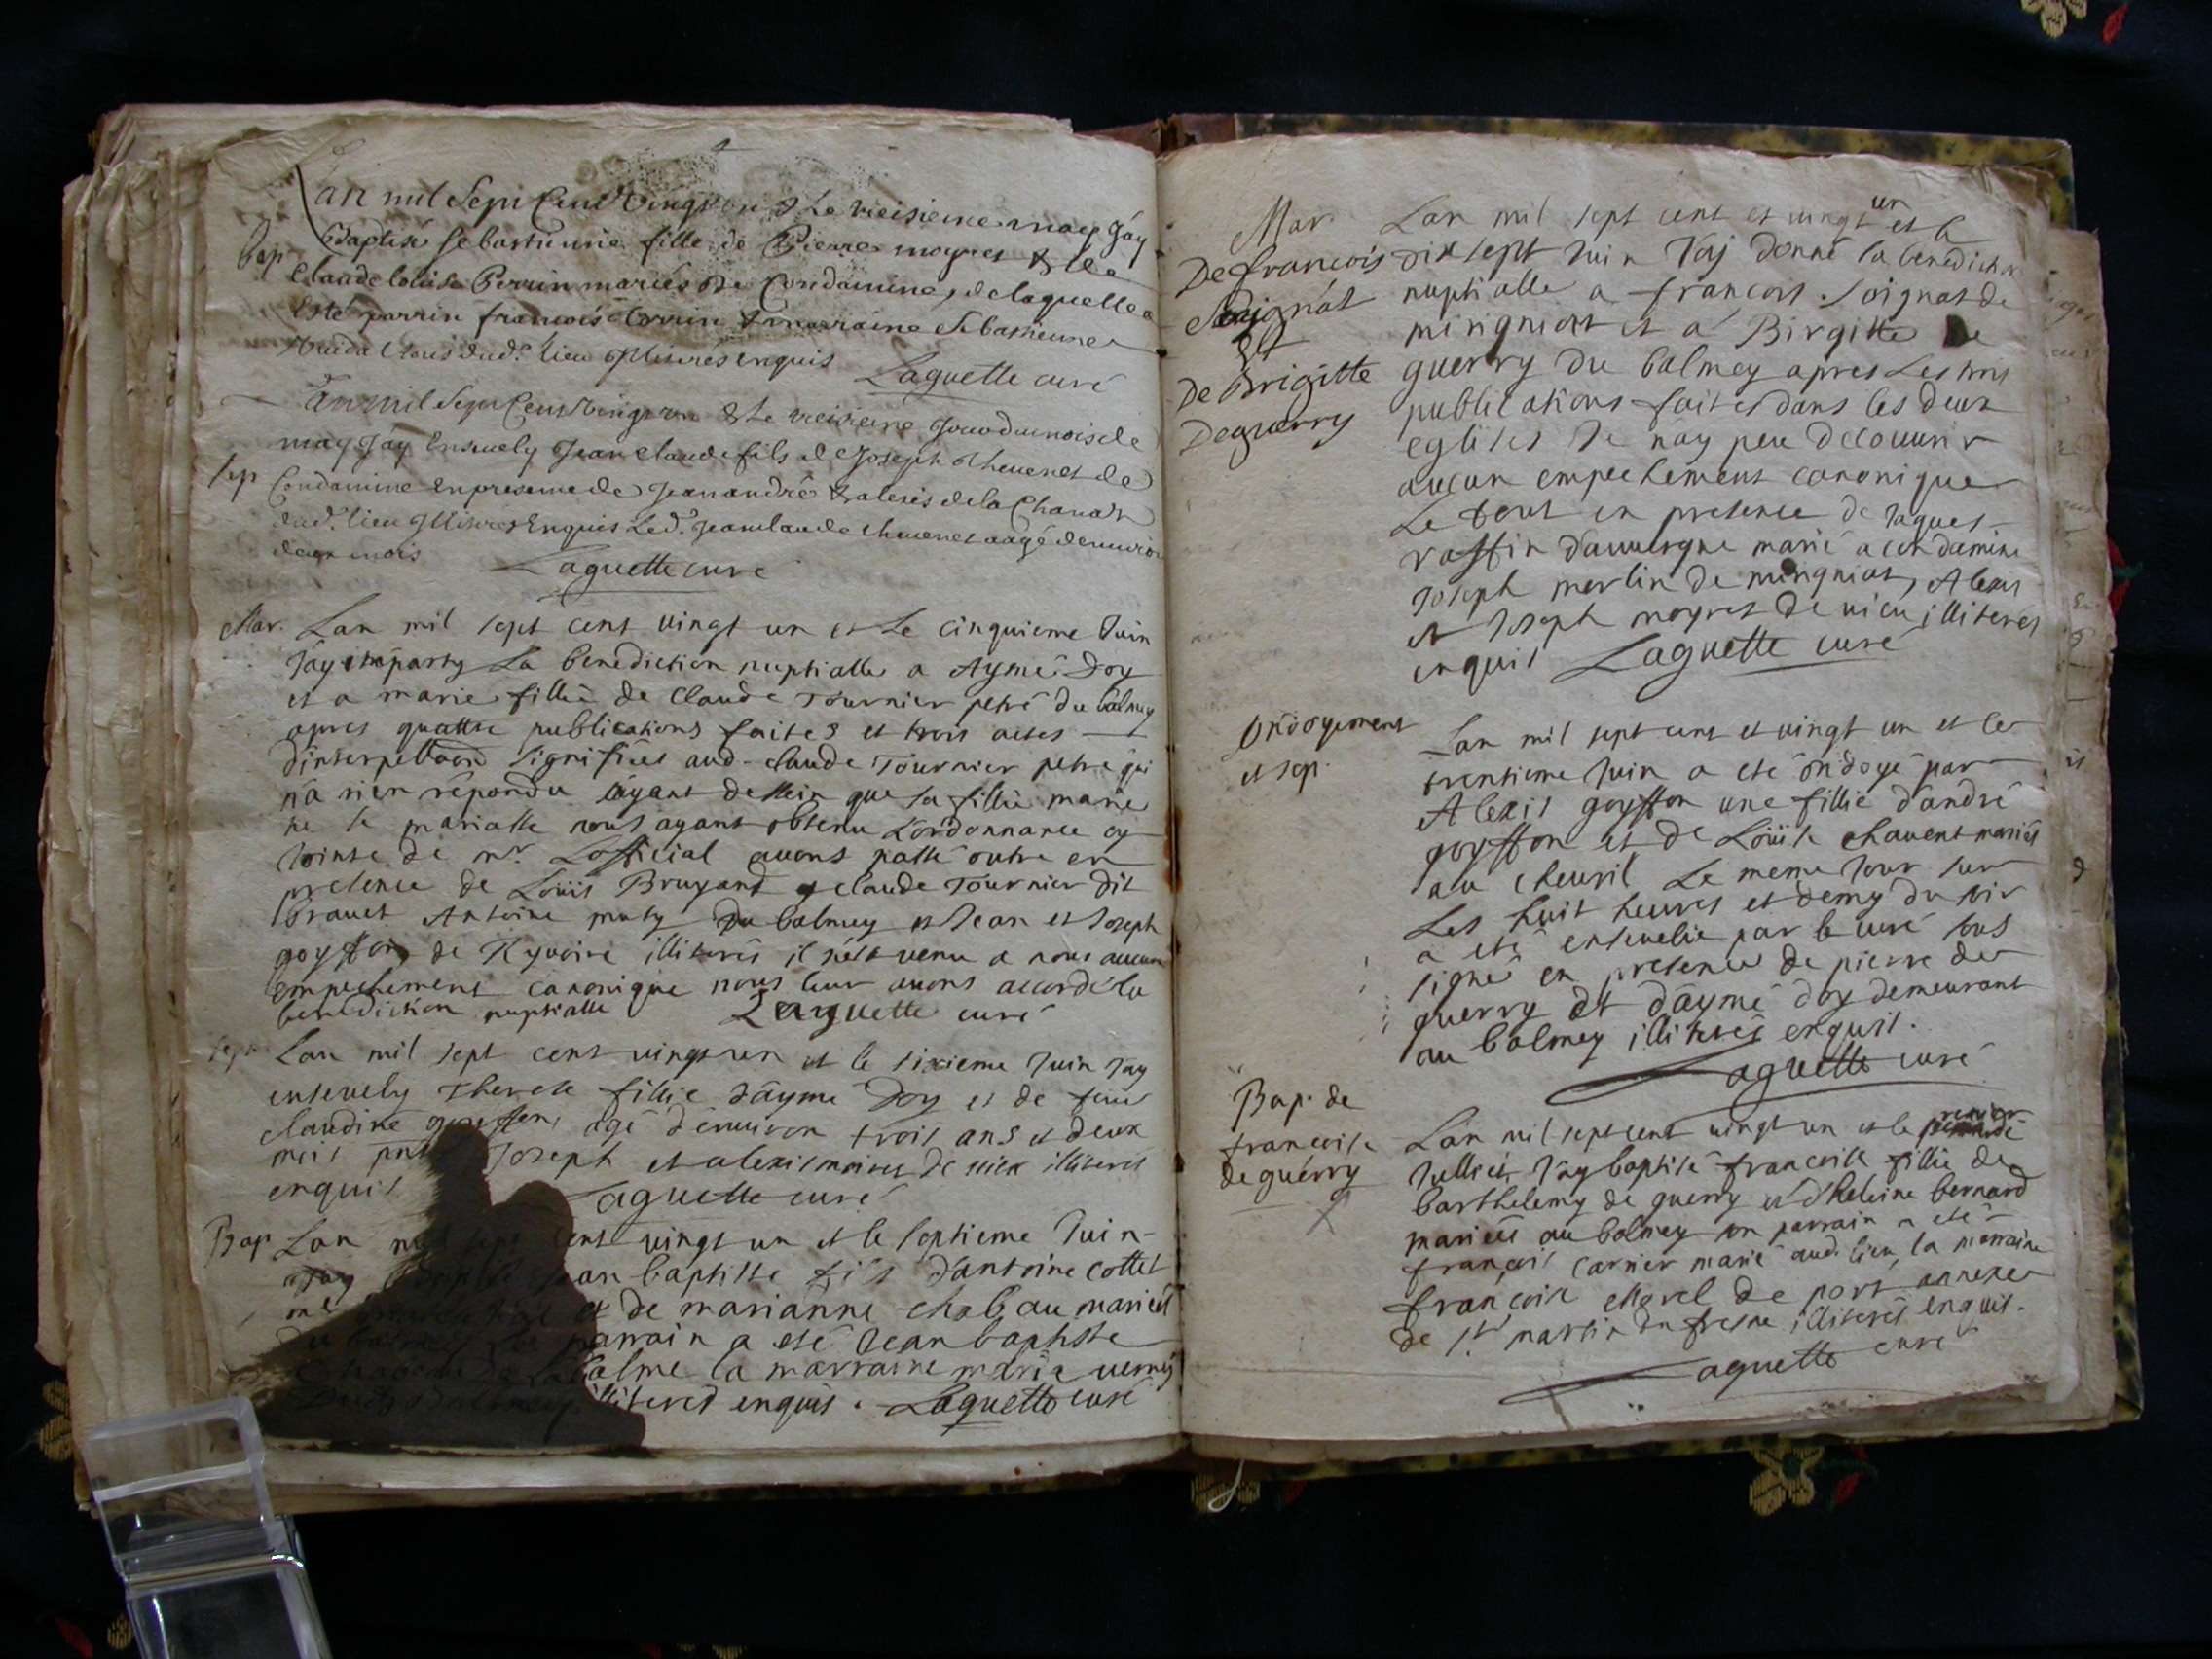 Lan mil Sept Cent Vingt un & Le treisieme may Jáy
bap Baptisé Sebastienne fille de Pierre moyret & de
Claude loüise Perrin mariés de Condamine, de laquelle a
Esté parrin francois Perrin & marraine Sebastienne
tous dud.t lieu illiterés enquis Laguette curé
Lan mil Sept Cent Vingt un & le treisieme Jour du mois de
may Jáy Ensevely Jean claude fils de Joseph Thevenet de
Sep Condamine en presence de Jean andrê & alexis de la Chana
dud.t lieu illiterés Enquis Led.t Jean claude thevenet aagé denviron
deux mois Laguette curé
Mar. Lan mil sept cent vingt un et Le cinquieme Juin
Jáy imparty La benediction nuptialle a Aymé Doy
et a marie fillie de Claude Tournier petré du balmey
apres quattre publications faites et trois actes
dinterpellaon signifiées aud. claude Tournier petré qui
na rien répondu ayant dessein que sa fillie marie
ne se mariasse nous ayant obtenu Lordonnance cy
Jointe de mr. Lofficial avons passé outre en
presence de Loüis Bruyand & claude Tournier dit
Brauet Antoine muty du balmey et Jean et Joseph
goyffon de Ryvoire illiterés il nést venu a nous aucun
empechement canonique nous leur avons accordé la
benediction nuptialle Laguette curé
Sep. Lan mil sept cent vingt un et le sixieme Juin Jay
ensevely Therese fillie dáyme Doy et de feue
claudine goyffon, agé dénviron trois ans et deux
mois Joseph et alexis moires de vieu illiterés
enquis Laguette curé
Bap Lan mil sept cent vingt un et le septieme Juin
Jay Jean baptiste fils dántoine cottet
et de marianne chabeau mariés
parrain a esté Jean baptiste
balme la marraine marie verney
illiteres enquis . Laguette curé
Mar
De francois
Soignat
Et
De Brigitte
Deguerry
Lan mil sept cent et vingt un et le
dixsept Juin Jaj donné la benediction
nuptialle a francois Soignat de
mirigniat et a Birgitte De
guerry du balmey apres Les trois
publications faites dans les deux
eglises Je náy peu decouurir
aucun empechement canonique
Le tout en presence de Jaques
roffin dauuergne marié a condamine
Joseph merlin de mirigniat, Alexis
et Joseph moyret de vieu illiterés
enquis Laguette curé
Ondoyement
et sep.
Lan mil sept cent et vingt un et le
trentieme Juin a eté ondoyé par
Alexis goyffon une fillie dándré
goyffon et de Loüise chavent mariés
au cheuril Le meme Jour sur
Les huit heures et demy du soir
a eté ensevelie par le curé sous
signé en presence de pierre de
guerry et dáymé doy demeurant
au balmey illiterés enquis.
Laguette curé
Bap. de
francoise
de guérry
Lán mil sept cent vingt un et le premier
Julliet Jáy baptisé francoise fillie de
barthelemy de guerry et dhéleine bernard
mariés au balmey son parrain a eté
françois carrier marié aud. lieu, la marraine
françoise morel de port annexe
de St. martin du fresne illiterés enquis.
Laguette curé